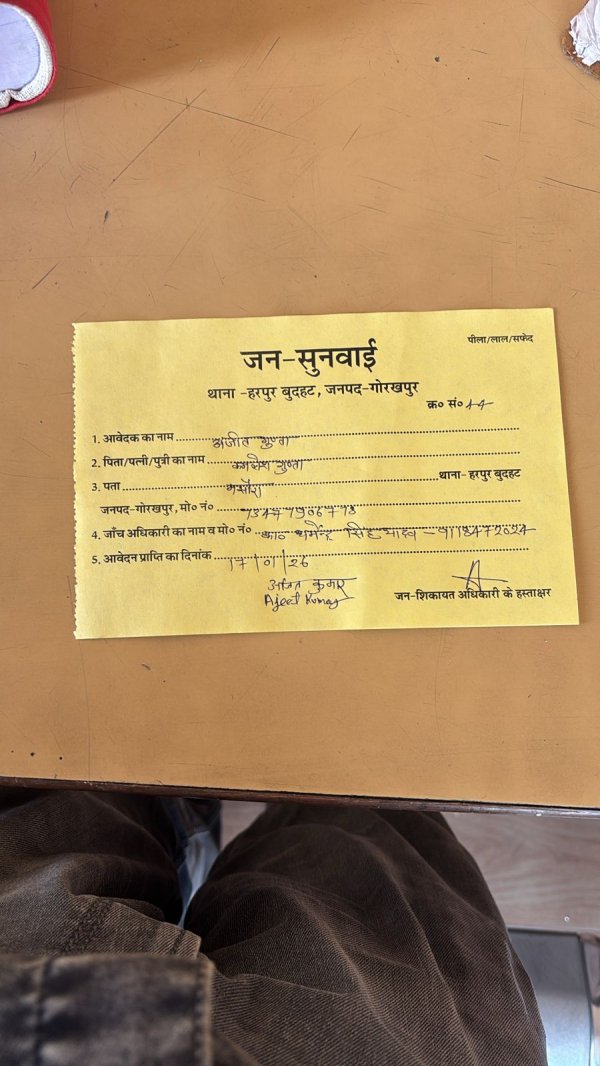 पीला/लाल/सफेद
जन-सुनवाई
थाना -हरपुर बुदहट, जनपद-गोरखपुर
क्र० सं० 44
1. आवेदक का नाम अजीत गुप्ता
2. पिता/पत्नी/पुत्री का नाम कमलेश गुप्ता
3. पता थाना- हरपुर बुदहट
जनपद-गोरखपुर, मो० नं०
4. जाँच अधिकारी का नाम व मो० नं० का० धर्मेन्द्र सिंह यादव -
5. आवेदन प्राप्ति का दिनांक 17/01/26
अजित कुमार
Ajeet Kumar
जन-शिकायत अधिकारी के हस्ताक्षर